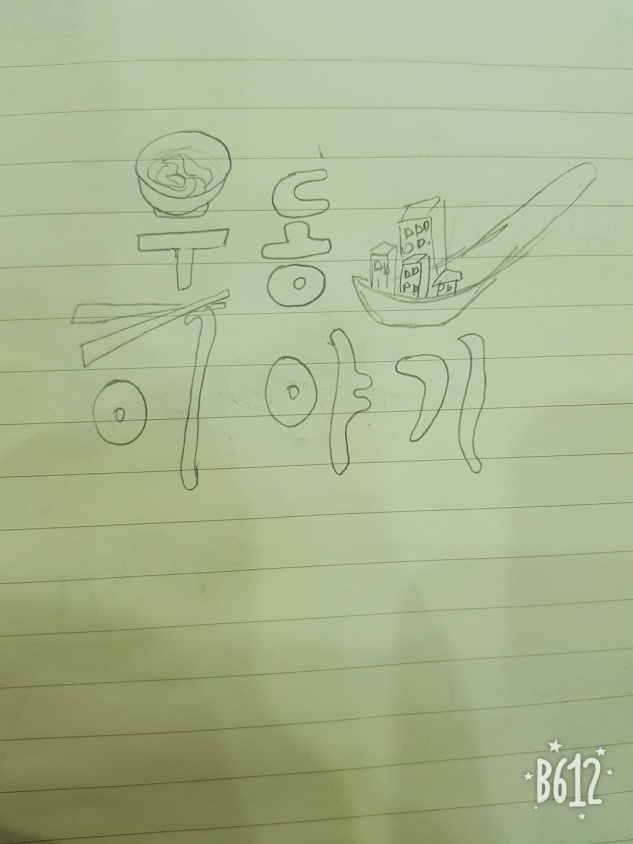 우동
이야기
B612